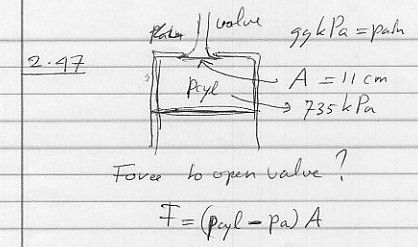 valve
99 kPa = patm
2.47
A = 11 cm
Pcyl
735 kPa
Force to open valve ?
F = (pcyl - pa) A